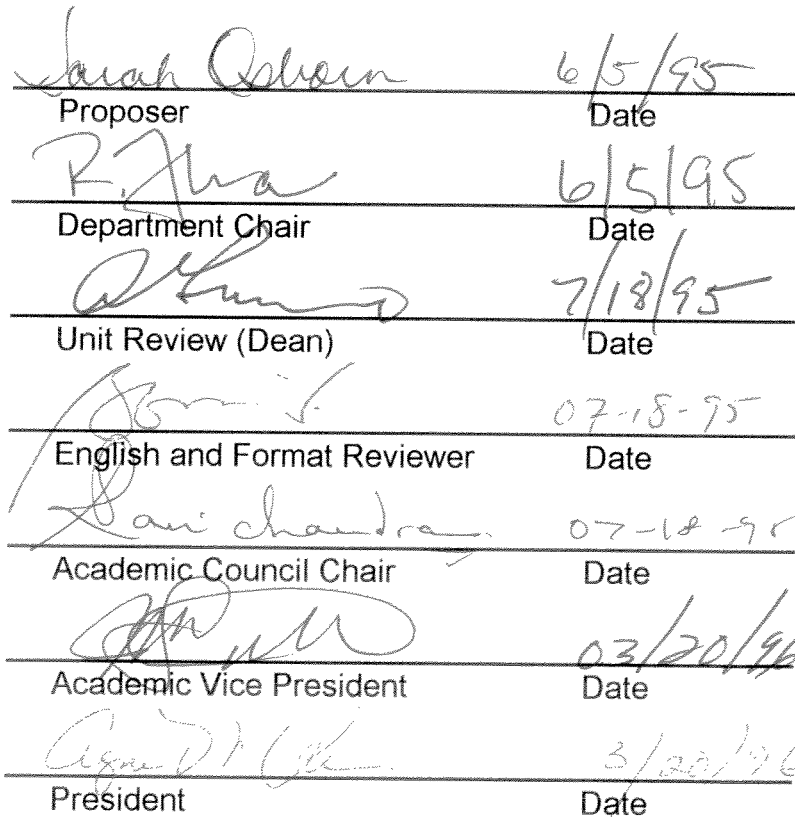 Sarah Osborn 6/5/95
Proposer Date
R. 6/5/95
Department Chair Date
7/18/95
Unit Review (Dean) Date
07-18-95
English and Format Reviewer Date
chandran 07-18-95
Academic Council Chair Date
03/20/96
Academic Vice President Date
3/20/96
President Date